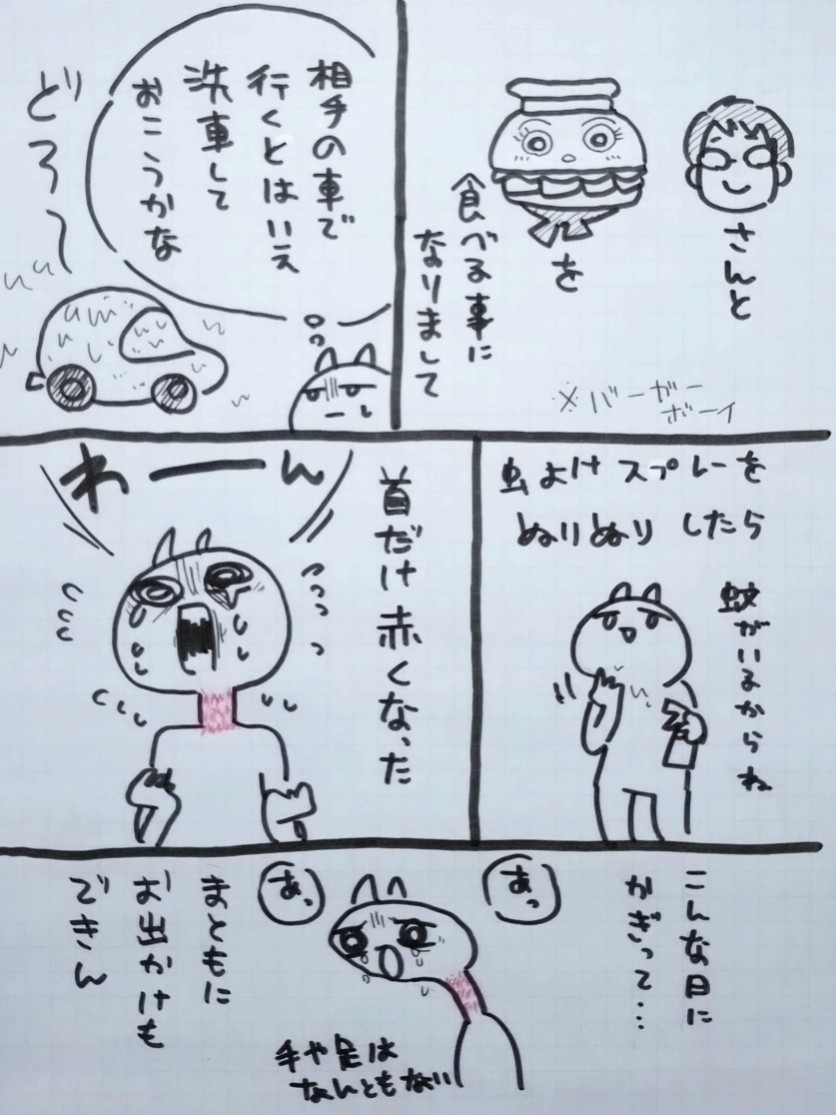 さんと
を
食べる事に
なりまして
※バーガー
ボーイ
相手の車で
行くとはいえ
洗車して
おこうかな
どろ〜
虫よけスプレーを
ぬりぬりしたら
蚊がいるからね
首だけ赤くなった
わーーん
こんな日に
かぎって…
あっ
あっ
手や足は
なんともない
まともに
お出かけも
できん